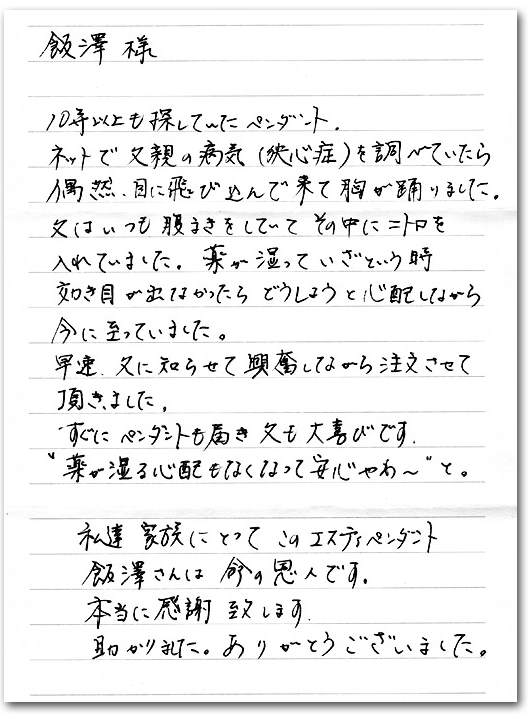 飯澤 様
10年以上も探していたペンダント.
ネットで父親の病気(狭心症)を調べていたら
偶然、目に飛び込んで来て胸が踊りました。
父はいつも腹まきをしていてその中にニトロを
入れていました。薬が湿っていざという時
効き目が出なかったらどうしようと心配しながら
今に至っていました。
早速、父に知らせて興奮しながら注文させて
頂きました。
すぐにペンダントも届き父も大喜びです.
"薬が湿る心配もなくなって安心やわ〜"と。
私達家族にとってこのエスティペンダント
飯澤さんは命の恩人です。
本当に感謝致します.
助かりました。ありがとうございました。